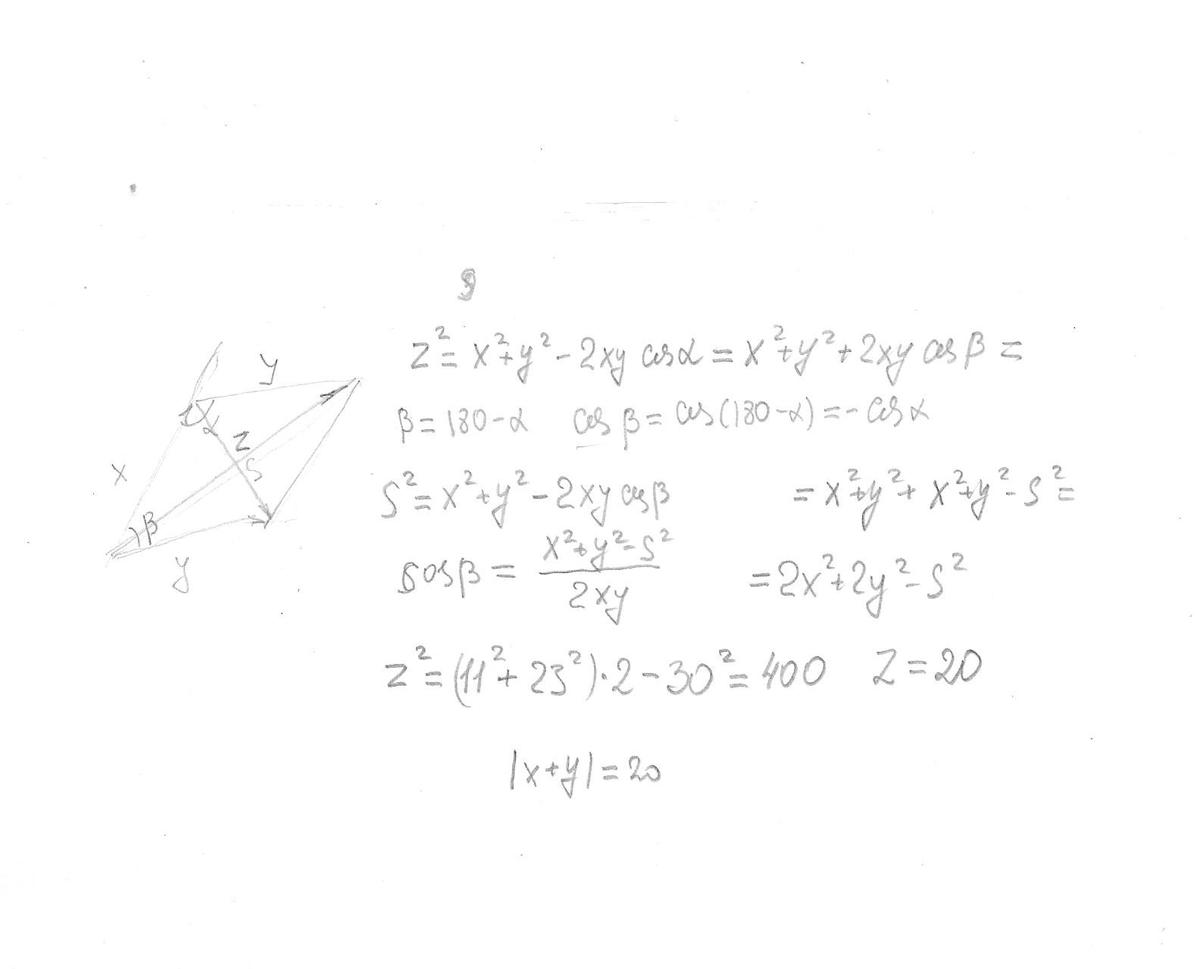 z² = x² + y² - 2xy cosα = x² + y² + 2xy cosβ =
β = 180 - α cosβ = cos(180 - α) = - cosα
S² = x² + y² - 2xy cosβ = x² + y² + x² + y² - S² =
cosβ = (x² + y² - S²) / 2xy = 2x² + 2y² - S²
z² = (11² + 23²)·2 - 30² = 400 Z = 20
|x + y| = 20
y
α
z
x
S
β
y